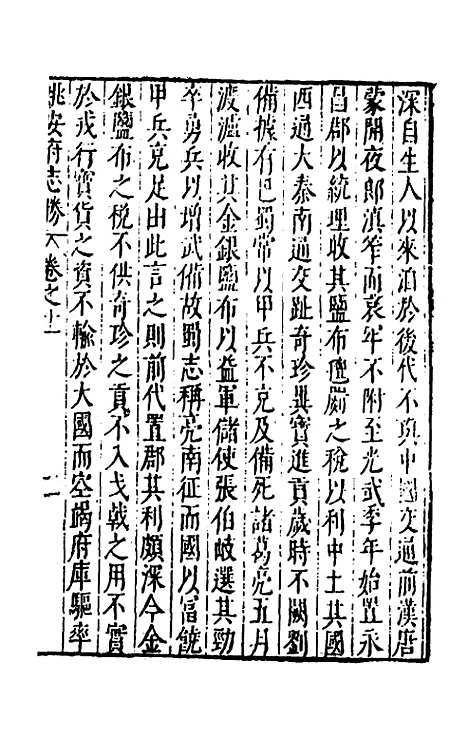 深自生人以來洎於後代不與中國交通前漢唐
蒙開夜郎滇笮而哀牢不附至光武季年始置永
昌郡以統理收其鹽布氊罽之稅以利中土其國
西通大秦南通交趾奇珍異寶進貢歲時不闕劉
備據有巴蜀常以甲兵不充及備死諸葛亮五月
渡瀘收其金銀鹽布以益軍儲使張伯岐選其勁
卒勇兵以增武備故蜀志稱亮南征而國以富饒
甲兵充足由此言之則前代置郡其利頗深今金
銀鹽布之稅不供奇珍之貢不入戈戟之用不實
於戎行寶貨之資不輸於大國而空竭府庫驅率
姚安府志 卷之十